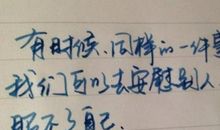 有时候,同样的一件
我们可以去安慰别人
不了自己.